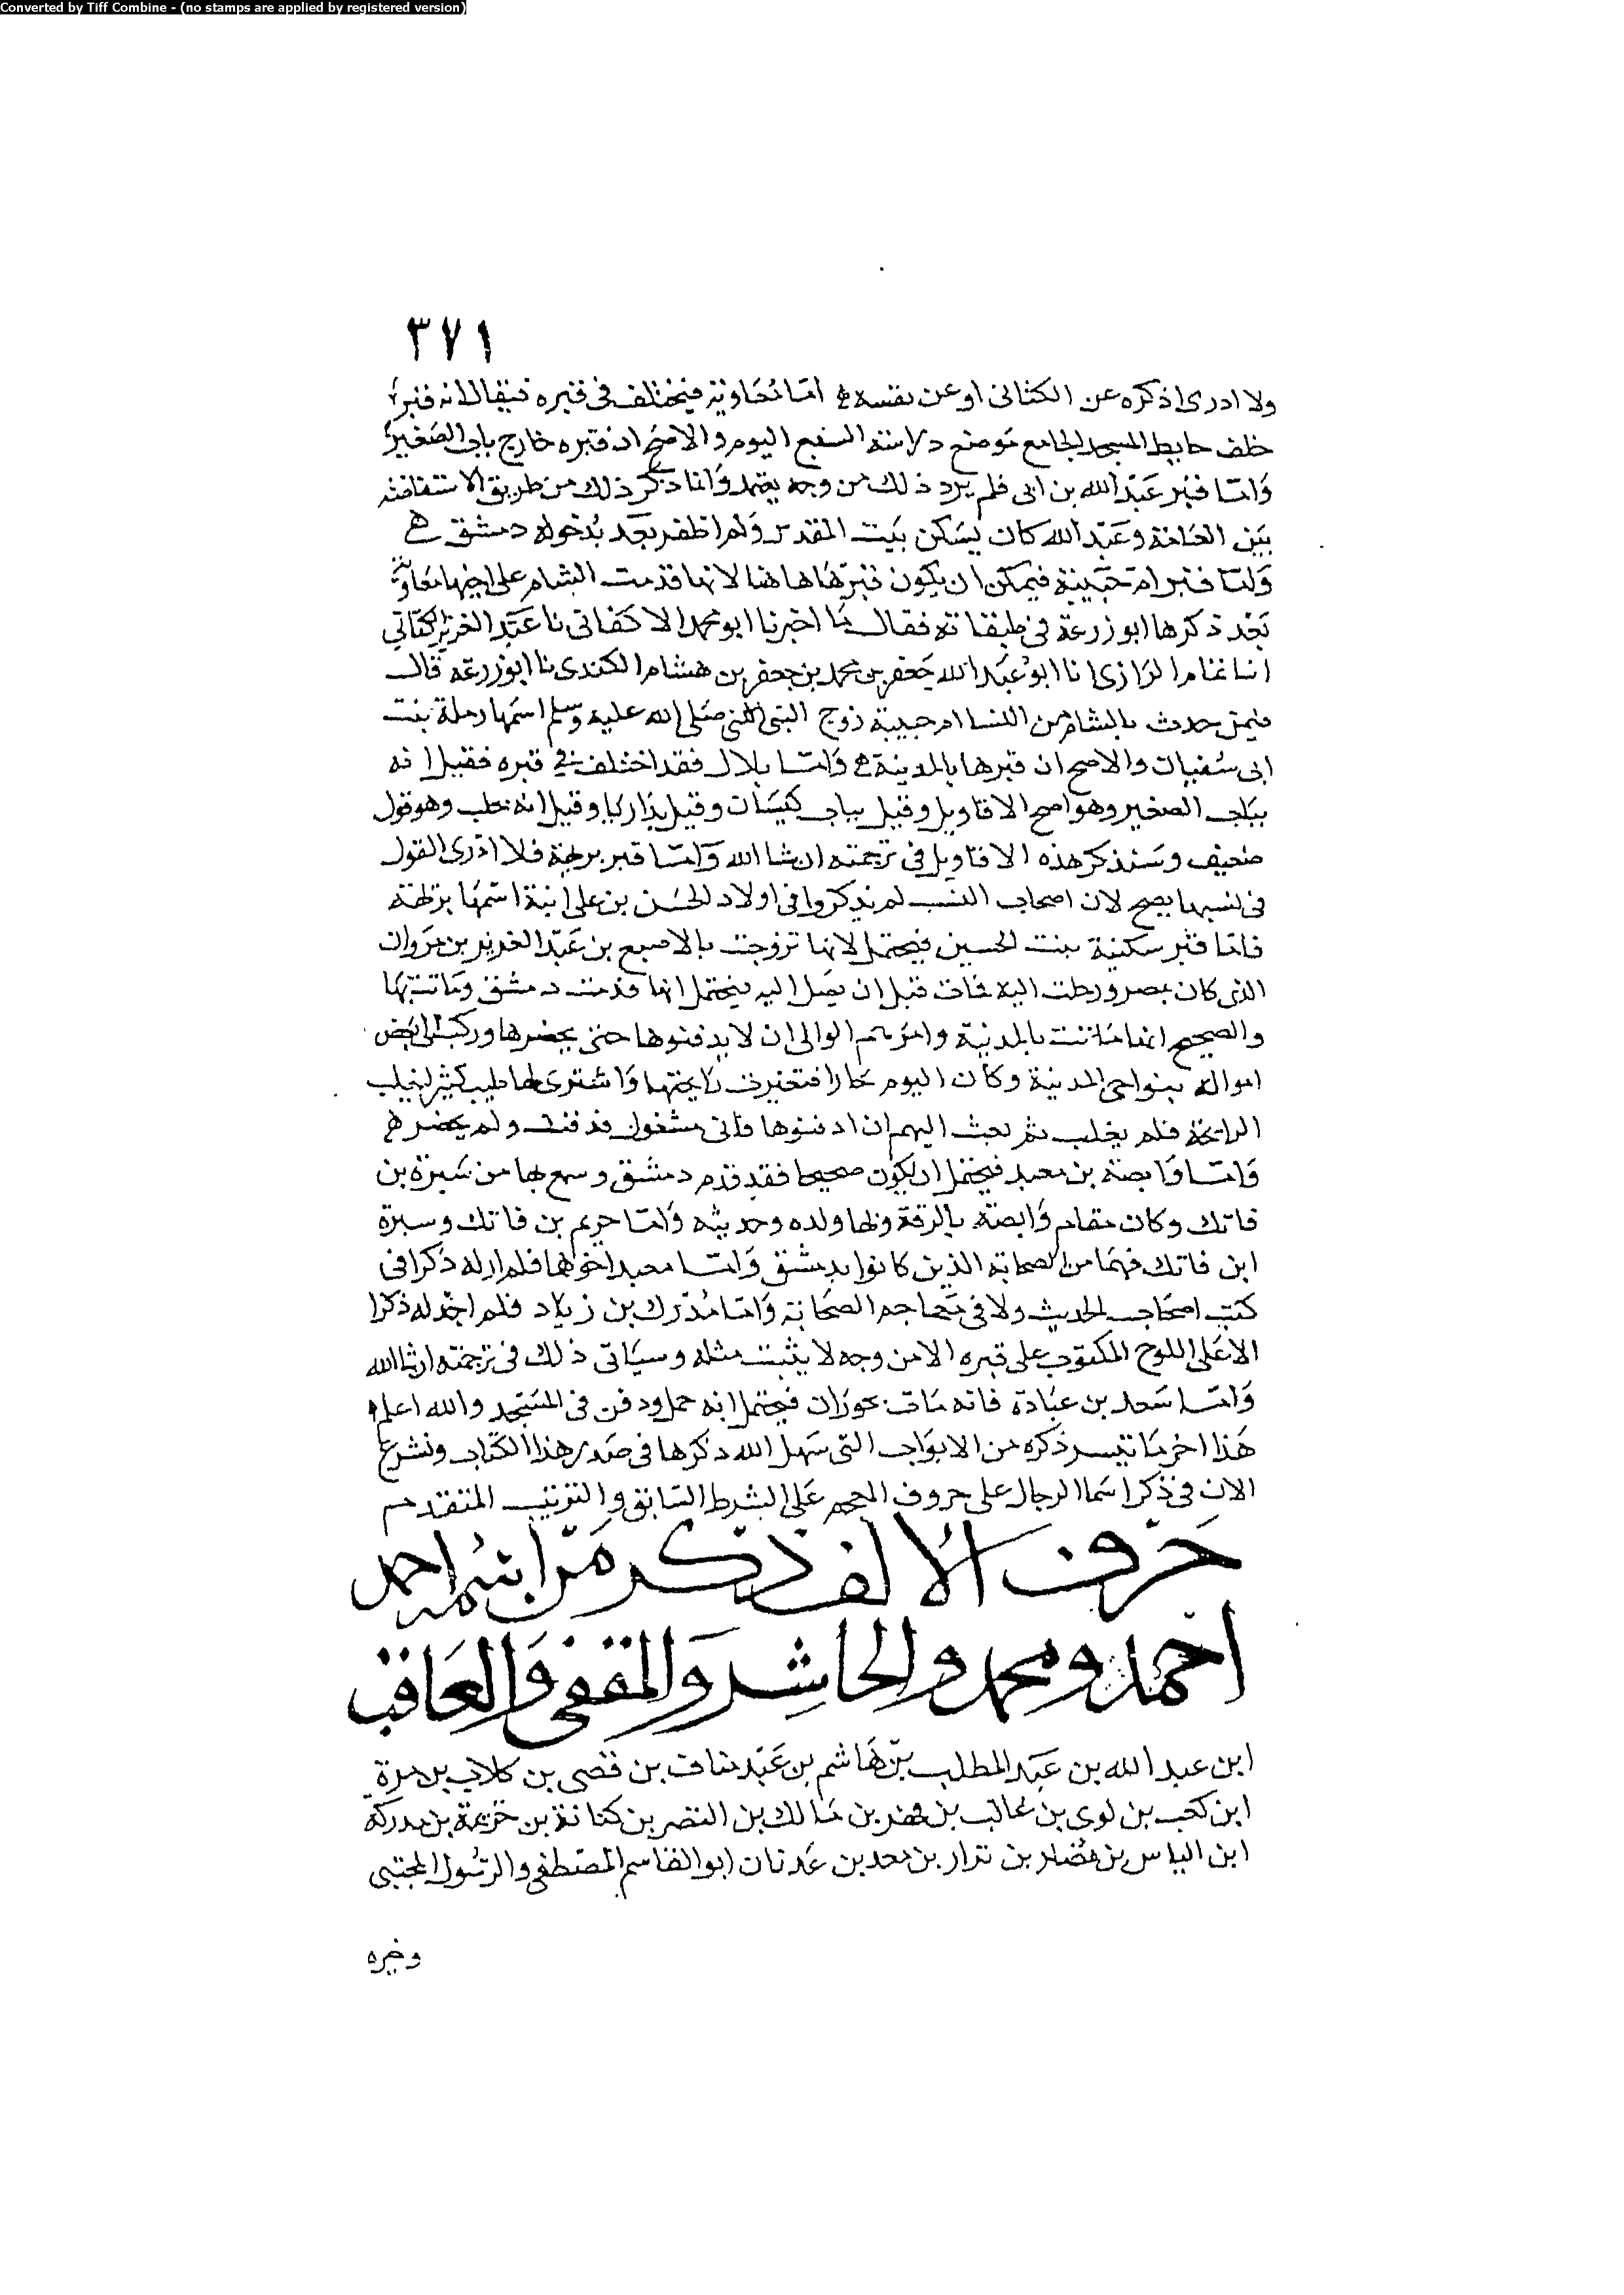 Converted by Tiff Combine - (no stamps are applied by registered version)
٣٧١
ولا ادرى اذكره عن الكتانى او عن نفسه ه امّا مُعَاوية فيختلف فى قبره فيقال انه قبرُه
خلف حايط المسجد الجامع موضع دراسة السبع اليوم والاصح ان قبره خارج باب الصغير
وَامّا قبر عَبْد الله بن ابى فلم يرد ذلك من وجه يعتمد وَانما ذكر ذلك من طريق الاستفاضة
بَيْن العَامة وعَبْد الله كان يسَكن بَيت المقدس وَلم اظفر بَعد بُدخوله دمشق ه
وَامّا قبر ام حَبيبة فيمكن ان يكون قبرهَا هاهنا لانها قدمت الشام على اخيها مُعاوية
بَعْد ذكرها ابو زرعة فى طبقاته فقال مَا اخبرنا ابو محمد الاكفانى نا عَبْد العزيز الكتّاني
انا تمام الرَازى انا ابو عَبْد الله جَعفر بن محمد بن جعفر بن هشام الكندى نا ابو زرعة قال
فيمن حدث بالشام من النسا ام حبيبة زوج النبى صَلى الله عليه وسلم اسمها رملة بنت
ابى سُفيان والاصح ان قبرها بالمدينة ه وَامّا بلال فقد اختلف في قبره فقيل انه
ببَاب الصغير وهو اصح الاقاويل وقيل بباب كيسَان وقيل بدَاريا وقيل انه بحلب وهو قول
ضعيف وسَنذكر هذه الاقاويل فى ترجمته ان شا الله وَامّا قبر بريهة فلا ادْرى القول
فى نسبها يصح لان اصحاب النسَب لم يذكروا فى اولاد الحسَن بن على ابنة اسمهَا بريهة
فامّا قبر سكينة بنت الحسين فيحتمل لانها تزوجت بالاصبع بن عَبْد العزيز بن مَروان
الذى كان بمصر ورحلت اليه فمات قبل ان يصَل اليه فيحتمل انها قدمت دمشق وماتت بَها
والصحيح انها مَاتت بالمدينة وامَرهم الوالى ان لا يدفنوها حتى يحضرها وركب الى بَعض
امواله بنواحى المدينة وكان اليوم حَارا فتغيرت رَايحتها وَاشترى لها طيب كثير ليغلب
الرايحة فلم يغلب ثم بعث اليهم ان ادفنوها فانى مشغول فدفنت ولم يحضر ه
وَامّا وَابصة بن معبد فيحتمل ان يكون صحيحا فقد قدم دمشق وسمع بها من سَبرة بن
فاتك وكان مقام وَابصة بالرقة وبها ولده وحديثه وَامّا خريم بن فاتك وسبرة
ابن فاتك فهمَا من الصحابة الذين كانوا بدمشق وَامّا معبد اخوهما فلم ار له ذكرا فى
كتب اصحَاب الحديث ولا فى مَعاجم الصحَابة وَامّا مُدْرك بن زياد فلم اجْد له ذكرا
الا على اللوح المكتوب على قبره الا من وجه لا يثبت مثله وسيَاتى ذلك فى ترجمته ان شا الله
وَامّا سَعد بن عبَادة فانه مَات بحوران فيحتمل انه حمل ودفن فى المسَجد والله اعلم ه
هَذا اخر مَا تيسر ذكره من الابوَاب التى سَهل الله ذكرَها فى صَدر هذا الكتاب ونشرع
الان فى ذكر اسَما الرجال على حروف المعجم عَلى الشرط السَابق والترتيب المتقدم
حَرْف الألف ذكر مَنْ اسْمه احمد
احمد ومحمد والحاشر وَالمقفى وَالعَاقب
ابن عبد الله بن عَبد المطلب بْن هَاشم بن عَبْد مناف بن قصى بن كلاب بن مرة
ابن كعب بن لوى بن غالب بن فهر بن مَالك بن النضر بن كنانة بن خزيمة بن مدركة
ابن الياس بن مُضَر بن نزار بن معد بن عَدنان ابو القاسم المصَطفى والرسُول المجتبى
وخيره